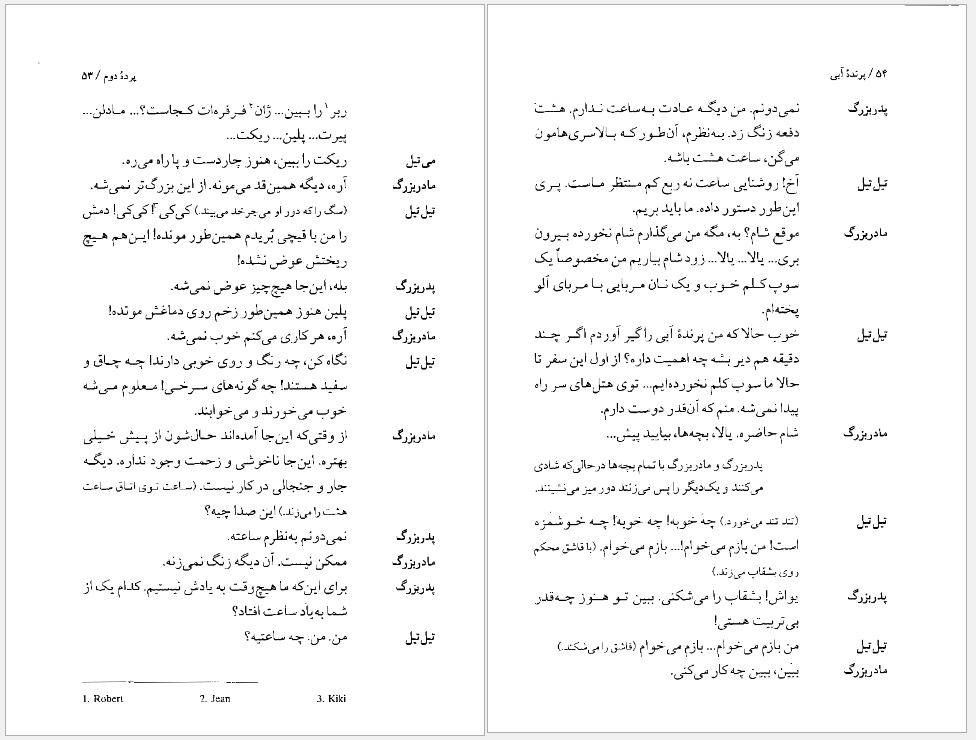 پردهٔ دوم / ۵۳
ربر۱ را ببین... ژان۲ فرفره‌ات کجاست؟... مادلن...
پیرت... پلین... ریکت...
می‌تیل ریکت را ببین، هنوز چاردست و پا راه می‌ره.
مادربزرگ آره، دیگه همین‌قد می‌مونه. از این بزرگ‌تر نمی‌شه.
تیل‌تیل (سگ را که دور او می‌چرخد می‌بیند) کی‌کی۳! کی‌کی! دمش
را من با قیچی بُریدم همین‌طور مونده! این‌هم هیچ
ریختش عوض نشده!
پدربزرگ بله، این‌جا هیچ‌چیز عوض نمی‌شه.
تیل‌تیل پلین هنوز همین‌طور زخم روی دماغش مونده!
مادربزرگ آره، هرکاری می‌کنم خوب نمی‌شه.
تیل‌تیل نگاه کن، چه رنگ و روی خوبی دارند! چه چاق و
سفید هستند! چه گونه‌های سرخی! معلوم می‌شه
خوب می‌خورند و می‌خوابند.
مادربزرگ از وقتی‌که این‌جا آمده‌اند حال‌شون از پیش خیلی
بهتره. این‌جا ناخوشی و زحمت وجود نداره. دیگه
جار و جنجالی در کار نیست. (ساعت توی اتاق ساعت
هشت را می‌زند.) این صدا چیه؟
پدربزرگ نمی‌دونم به‌نظرم ساعته.
مادربزرگ ممکن نیست. آن دیگه زنگ نمی‌زنه.
پدربزرگ برای این‌که ما هیچ‌وقت به یادش نیستیم. کدام یک از
شما به‌یاد ساعت افتاد؟
تیل‌تیل من. من. چه ساعتیه؟
1. Robert 2. Jean 3. Kiki
۵۴ / پرندهٔ آبی
پدربزرگ نمی‌دونم. من دیگه عادت به‌ساعت ندارم. هشت
دفعه زنگ زد. به‌نظرم، آن‌طور که بالاسری‌هامون
می‌گن، ساعت هشت باشه.
تیل‌تیل آخ! روشنایی ساعت نه ربع کم منتظر ماست. پری
این‌طور دستور داده. ما باید بریم.
مادربزرگ موقع شام؟ به، مگه من می‌گذارم شام نخورده بیرون
بری... یالا... یالا... زود شام بیاریم من مخصوصاً یک
سوپ کلم خوب و یک نان مربایی با مربای آلو
پخته‌ام.
تیل‌تیل خوب حالا که من پرندهٔ آبی را گیر آوردم اگر چند
دقیقه هم دیر بشه چه اهمیت داره؟ از اول این سفر تا
حالا ما سوپ کلم نخورده‌ایم... توی هتل‌های سر راه
پیدا نمی‌شه. منم که آن‌قدر دوست دارم.
مادربزرگ شام حاضره. یالا، بچه‌ها، بیایید پیش...
پدربزرگ و مادربزرگ با تمام بچه‌ها درحالی‌که شادی
می‌کنند و یک‌دیگر را پس می‌زنند دور میز می‌نشینند.
تیل‌تیل (تند تند می‌خورد.) چه خوبه! چه خوبه! چه خوشمزه
است! من بازم می‌خوام!... بازم می‌خوام. (با قاشق محکم
روی بشقاب می‌زند.)
پدربزرگ یواش! بشقاب را می‌شکنی. ببین تو هنوز چه‌قدر
بی‌تربیت هستی!
تیل‌تیل من بازم می‌خوام... بازم می‌خوام (قاشق را می‌شکند.)
مادربزرگ ببین، ببین چه کار می‌کنی.